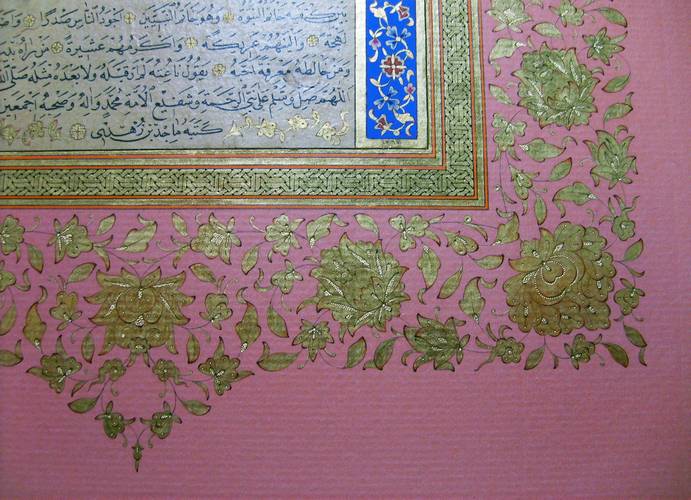 بين كتفيه خاتم النبوة وهو خاتم النبيين أجود الناس صدرا وأصد
لهجة وألينهم عريكة وأكرمهم عشيرة من رآه بديـ
ومن خالطه معرفة أحبه يقول ناعته لم أر قبله ولا بعده مثله صلى الله
اللهم صل وسلم على نبي الرحمة وشفيع الأمة محمد وآله وصحبه أجمعين
كتبه ماجد بن زهدي